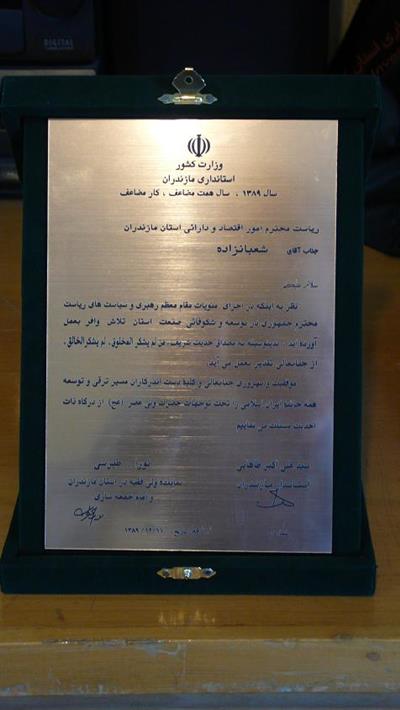 DIGITAL
وزارت کشور
استانداری مازندران
سال ۱۳۸۹ ، سال همت مضاعف ، کار مضاعف
ریاست محترم امور اقتصاد و دارائی استان مازندران
جناب آقای شعبانزاده
سلام علیکم
نظر به اینکه در اجرای منویات مقام معظم رهبری و سیاست های ریاست
محترم جمهوری در توسعه و شکوفائی صنعت استان تلاش وافر بعمل
آورده اید ، بدینوسیله به مصداق حدیث شریف، من لم یشکر المخلوق، لم یشکر الخالق،
از جنابعالی تقدیر بعمل می آید.
موفقیت و بهروزی جنابعالی و کلیه دست اندرکاران مسیر ترقی و توسعه
همه جانبه ایران اسلامی را تحت توجهات حضرت ولی عصر (عج) از درگاه ذات
احدیت مسئلت می نماییم
سید علی اکبر طاهایی
استاندار مازندران
نورا... طبرسی
نماینده ولی فقیه در استان مازندران
و امام جمعه ساری
۱۳۸۹/۱۲/۱۱